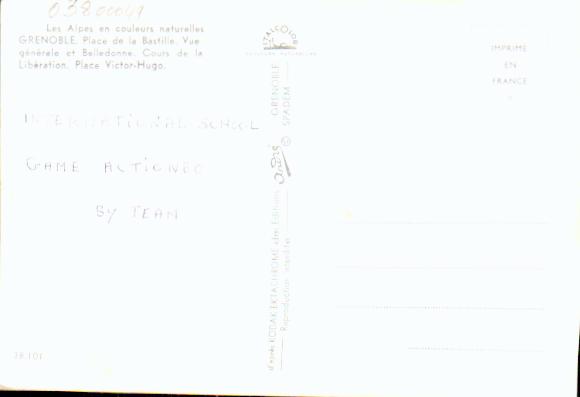 03800049
Les Alpes en couleurs naturelles
GRENOBLE. Place de la Bastille. Vue
générale et Belledonne. Cours de la
Libération. Place Victor-Hugo.
INTERNATIONAL SCHOOL
GAME ACTIONED
BY TEAM
28.101
GRENOBLE
SPADEM
©
André
d'après KODAK EKTACHROME Editions
Reproduction interdite
IMPRIMÉ
EN
FRANCE